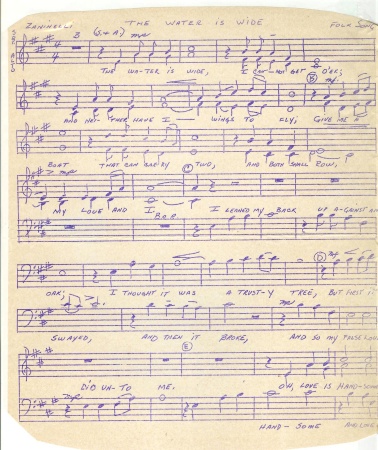 ZANINELLI THE WATER IS WIDE FOLK SONG
B (S. + A.) mp
THE WA-TER IS WIDE, I CAN-NOT GET O'ER;
B
AND NEI-THER HAVE I WINGS TO FLY; GIVE ME A
BOAT THAT CAN CAR-RY TWO, AND BOTH SHALL ROW,
mp C
MY LOVE AND I. I LEANED MY BACK UP A-GAINST AN
B.
D
OAK; I THOUGHT IT WAS A TRUST-Y TREE, BUT FIRST IT
SWAYED, AND THEN IT BROKE, AND SO MY FALSE LOVE
E
DID UN-TO ME. OH, LOVE IS HAND-SOME
HAND-SOME AND LOVE